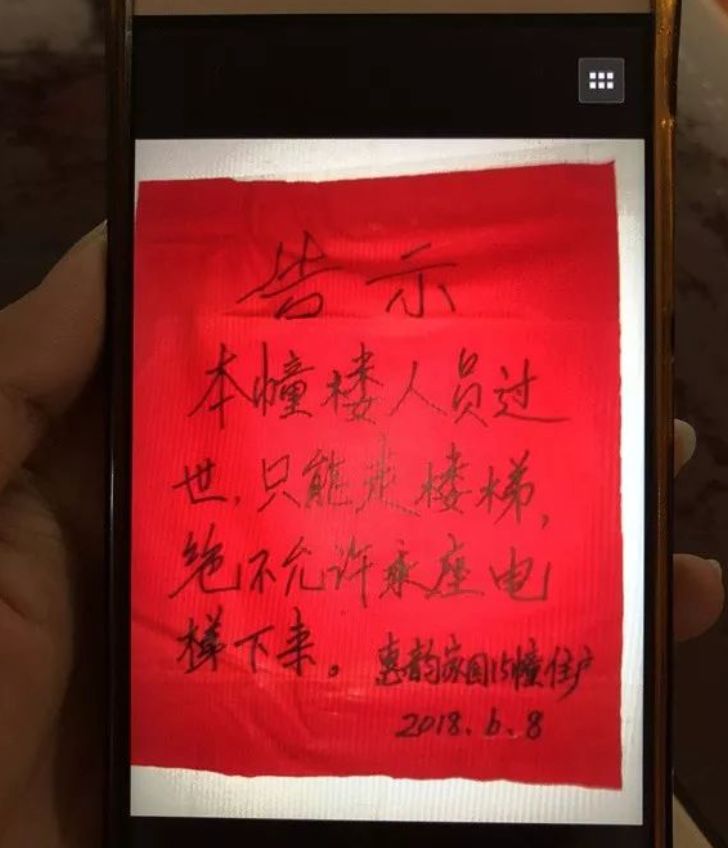 告示
本幢楼人员过
世，只能走楼梯，
绝不允许乘座电
梯下来。
惠韵家园15幢住户
2018.6.8